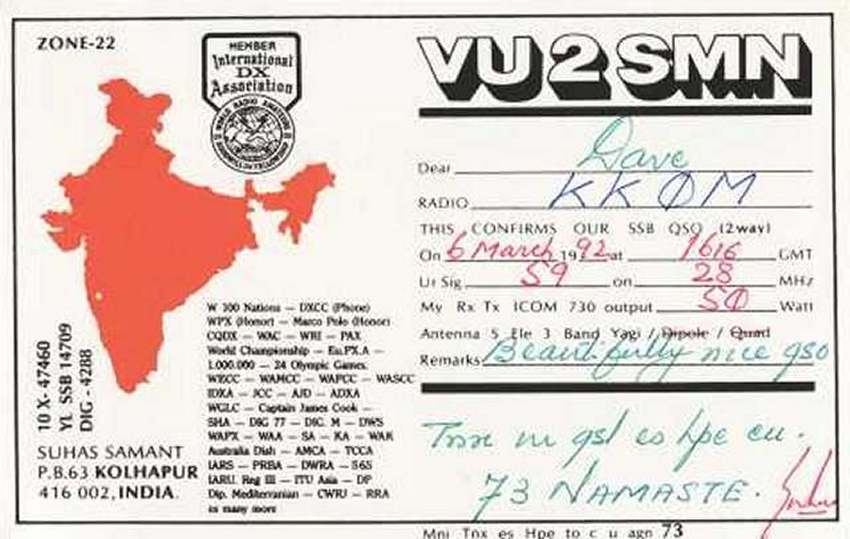 ZONE-22
MEMBER
International
DX
Association
WORLD RADIO AMATEURS
VU2SMN
Dear Dave
RADIO KKØM
THIS CONFIRMS OUR SSB QSO (2way)
On 6 March 1992 at 1616 GMT
Ur Sig 59 on 28 MHz
My Rx Tx ICOM 730 output 50 Watt
Antenna 5 Ele 3 Band Yagi / Dipole / Quad
Remarks Beautifully nice qso
10 X- 47460
YL SSB 14709
DIG - 4288
W 100 Nations — DXCC (Phone)
WPX (Honor) — Marco Polo (Honor)
CQDX — WAC — WRI — PAX
World Championship — Eu.PX.A —
1.000.000 — 24 Olympic Games.
WECC — WAMCC — WAPCC — WASCC
IDXA — JCC — AJD — ADXA
WGLC — Captain James Cook —
SHA — DIG 77 — DIG. M — DWS
WAPX — WAA — SA — KA — WAK
Australia Dish — AMCA — TCCA
IARS — PRBA — DWRA — 565
IARU. Reg III — ITU Asia — DP
Dip. Mediterranean — CWRJ — RRA
in many more
SUHAS SAMANT
P.B.63 KOLHAPUR
416 002, INDIA.
Tnx qsl es hpe cu.
73 NAMASTE.
Mni Tnx es Hpe to c u agn 73